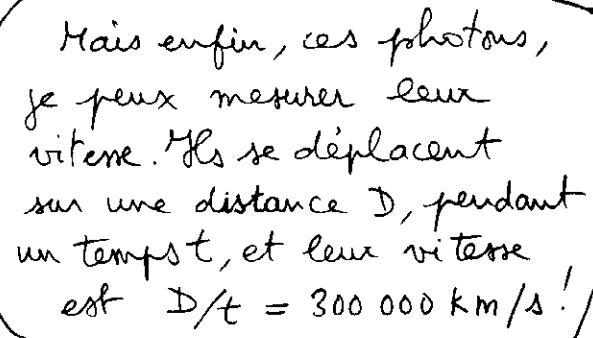 Mais enfin, ces photons,
je peux mesurer leur
vitesse. Ils se déplacent
sur une distance D, pendant
un temps t, et leur vitesse
est D/t = 300 000 km/s !